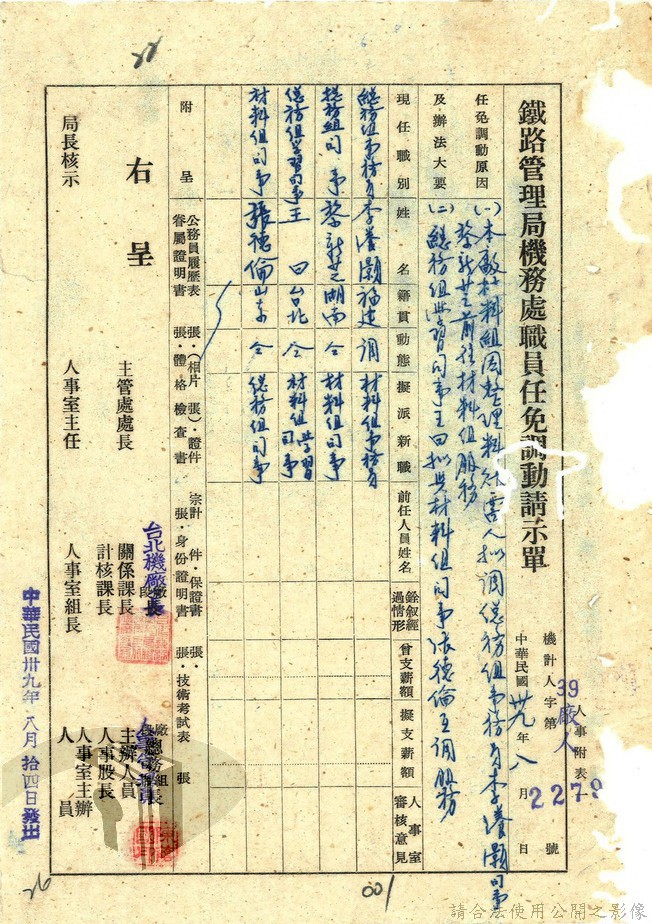 鐵路管理局機務處職員任免調動請示單
人事附表
機計人字第39廠人2279號
中華民國卅九年八月 日
任免調動原因及辦法大要
(一)本廠材料組因整理料帳需人擬調總務組事務員李濬灝司事
黎新芝前往材料組服務
(二)總務組學習司事王田擬與材料組司事張德倫互調服務
現任職別 姓名 籍貫 動態 擬派新職 前任人員姓名 銓敘經過情形 曾支薪額 擬支薪額 人事室審核意見
總務組事務員 李濬灝 福建 調 材料組事務員
總務組司事 黎新芝 湖南 仝 材料組司事
總務組學習司事 王田 台北 仝 材料組學習司事
材料組司事 張德倫 山東 仝 總務組司事
附呈
公務員履歷表 張·(相片 張)·證件 宗計 件·保證書 張·
眷屬證明書 張·體格檢查書 張·身份證明書 張·技術考試表 張
右呈
主管處處長
關係課長
計核課長
台北機廠廠長
段長
總務組長
主辦人員
人事股長
局長核示
人事室主任
人事室組長
人事室主辦人員
中華民國卅九年八月拾四日發出
001
請合法使用公開之影像